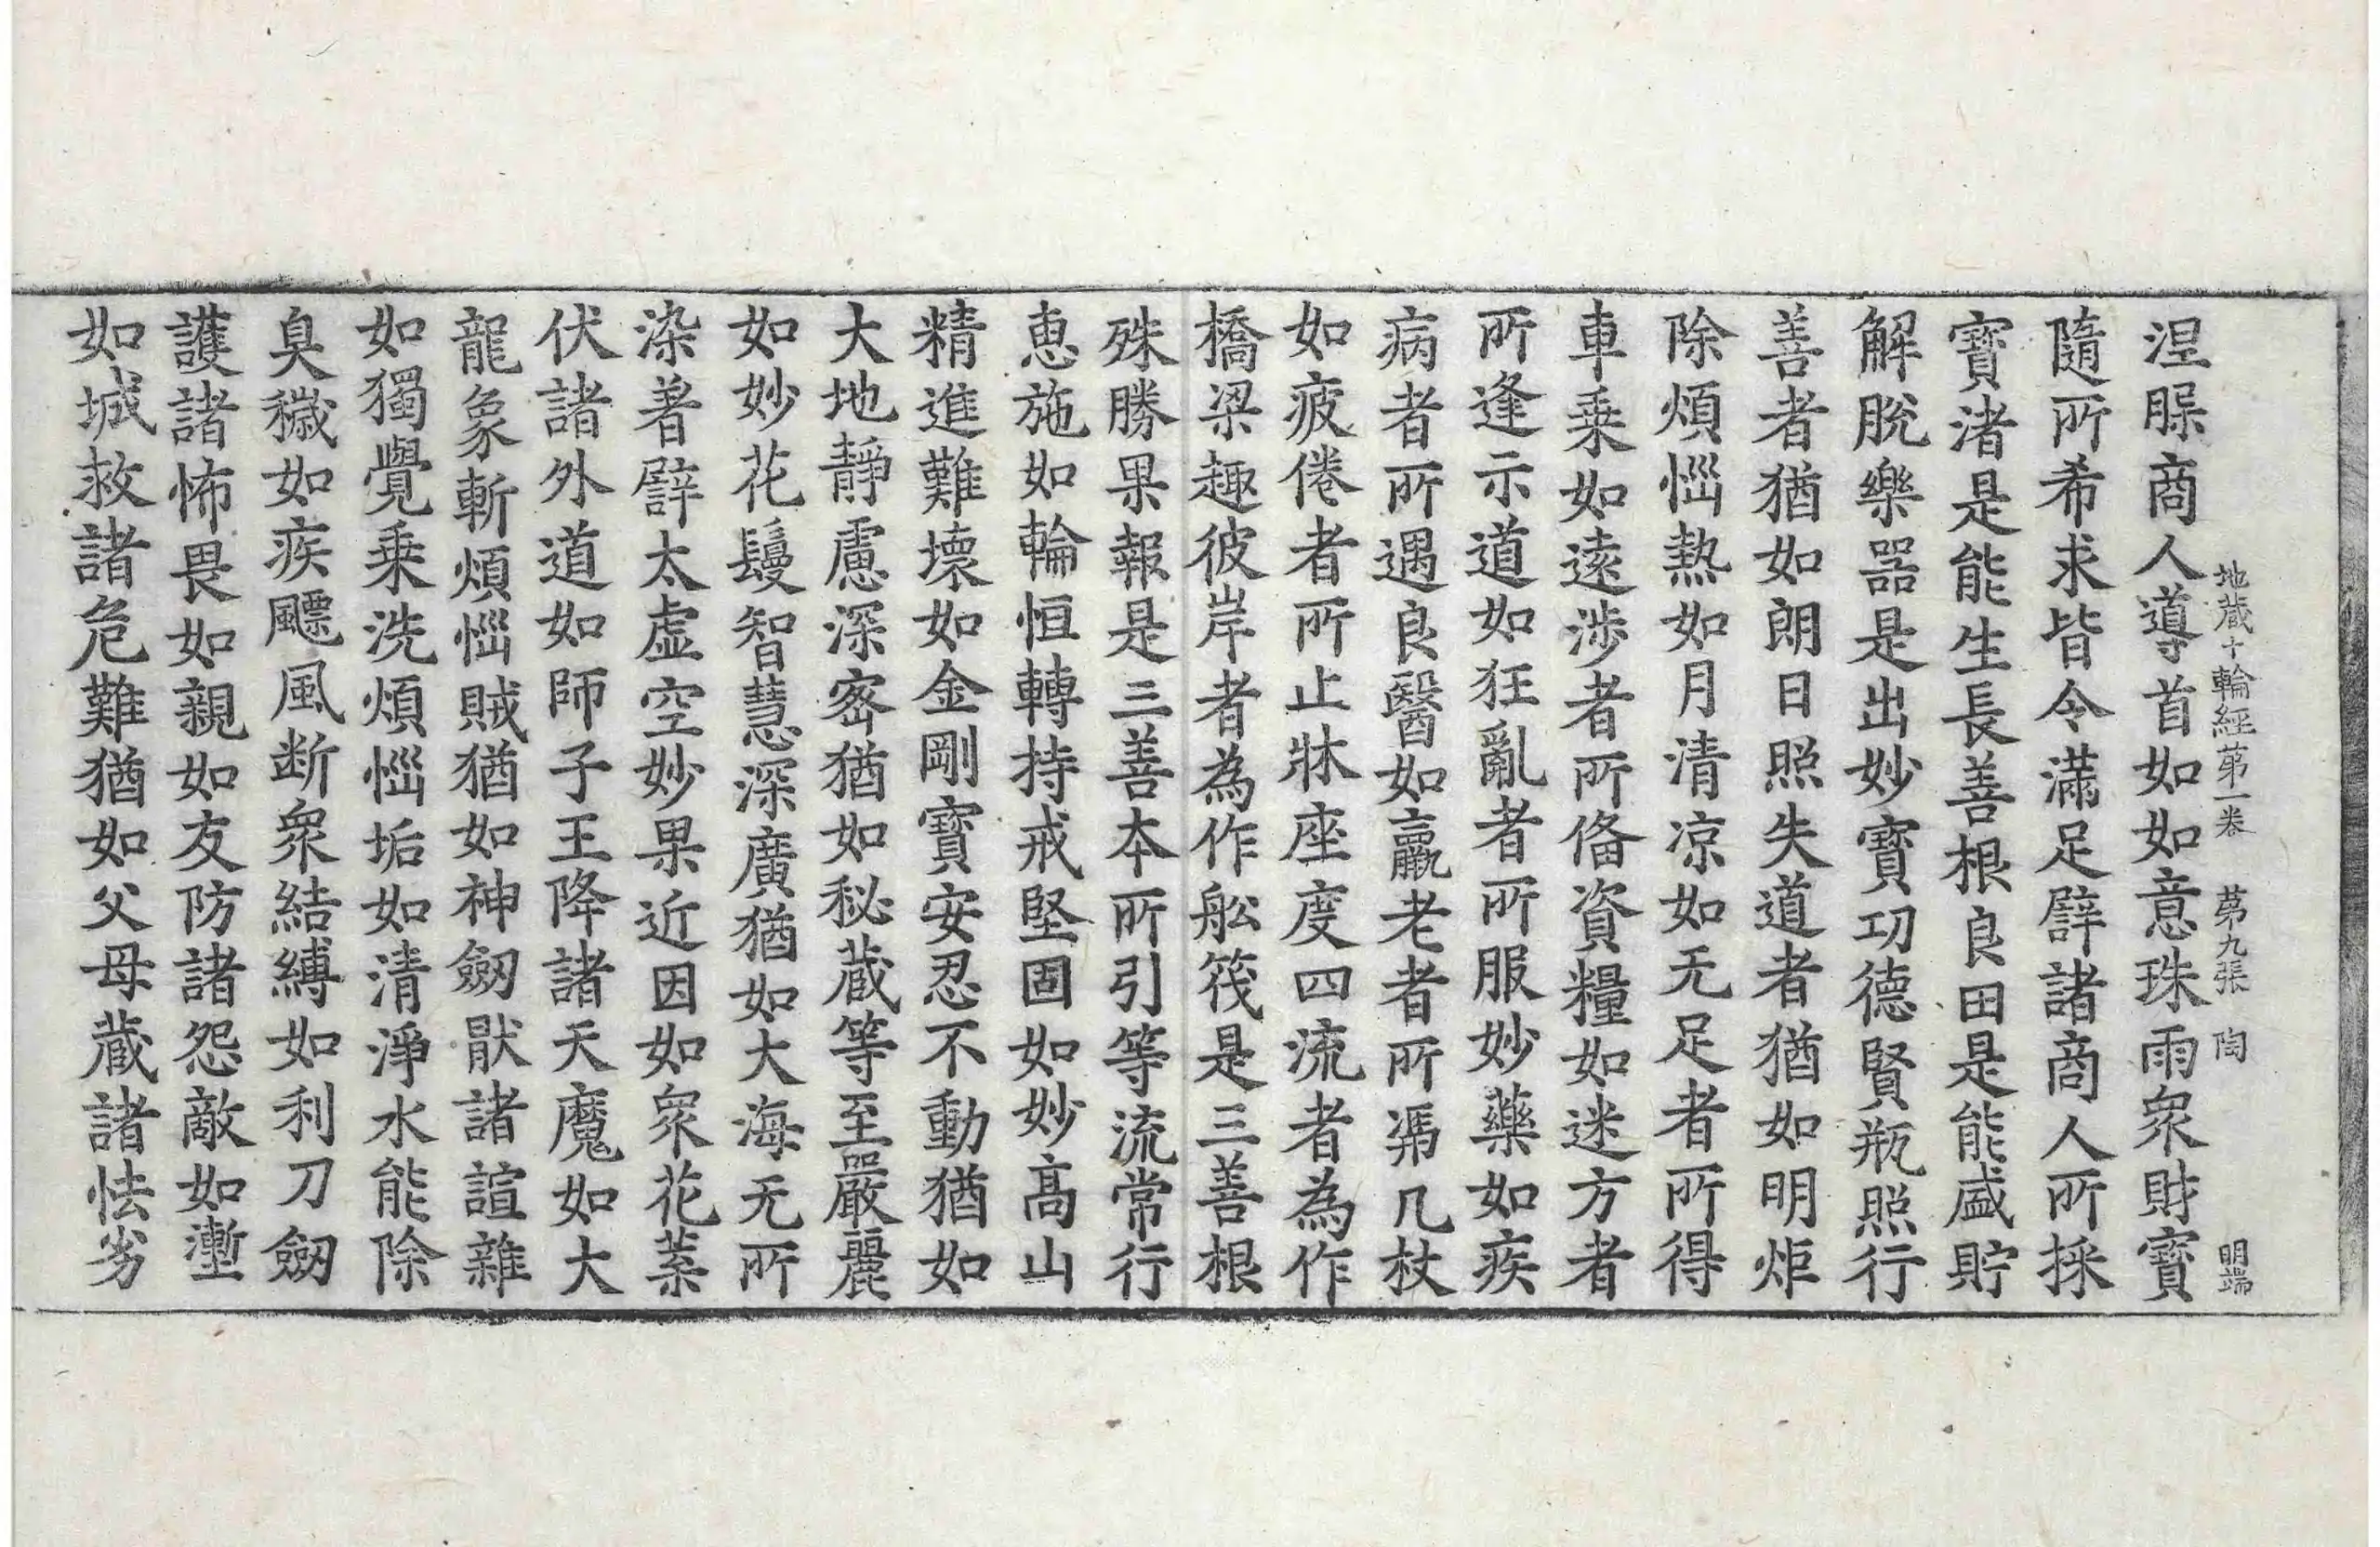 地藏十輪經苐一卷 苐九張 陶 明端
湼腂商人導首如如意珠雨衆財寳
隨所希求皆令滿足譬諸商人所採
寳渚是能生長善根良田是能盛貯
解脫樂器是出妙寳功德賢瓶照行
善者猶如朗日照失道者猶如明炬
除煩惱熱如月清涼如无足者所得
車乗如遠涉者所俻資糧如迷方者
所逢示道如狂亂者所服妙藥如疾
病者所遇良醫如羸老者所馮几杖
如疲倦者所止牀座度四流者為作
橋梁趣彼岸者為作舩筏是三善根
殊勝果報是三善本所引等流常行
恵施如輪恒轉持戒堅固如妙髙山
精進難壞如金剛寳安忍不動猶如
大地靜慮深宻猶如秘藏等至嚴麗
如妙花鬘智慧深廣猶如大海无所
染著譬太虛空妙果近因如衆花葉
伏諸外道如師子王降諸天魔如大
龍象斬煩惱賊猶如神劒猒諸諠雜
如獨覺乗洗煩惱垢如清淨水能除
臭穢如疾飄風断衆結縛如利刀劒
護諸怖畏如親如友防諸怨敵如塹
如城救諸危難猶如父母藏諸怯劣